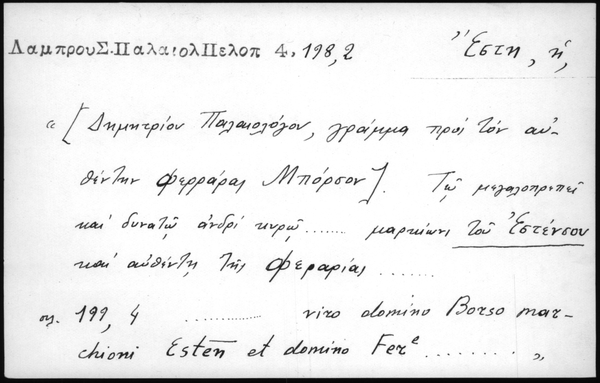 ΛαμπρουΣ.ΠαλαιολΠελοπ 4, 198,2 Ἔστη, ἡ,
« [Δημητρίου Παλαιολόγου, γράμμα πρὸς τὸν αὐ-
θέντην Φερράρας Μπόρσον]. Τῷ μεγαλοπρεπεῖ
καὶ δυνατῷ ἀνδρὶ κυρῷ ....... μαρκίωνι τοῦ Ἐστένσου
καὶ αὐθέντῃ τῆς Φεραρίας .......
σελ. 199, 4 .............. viro domino Borso mar-
chioni Esten̄ et domino Ferᵉ ......... »